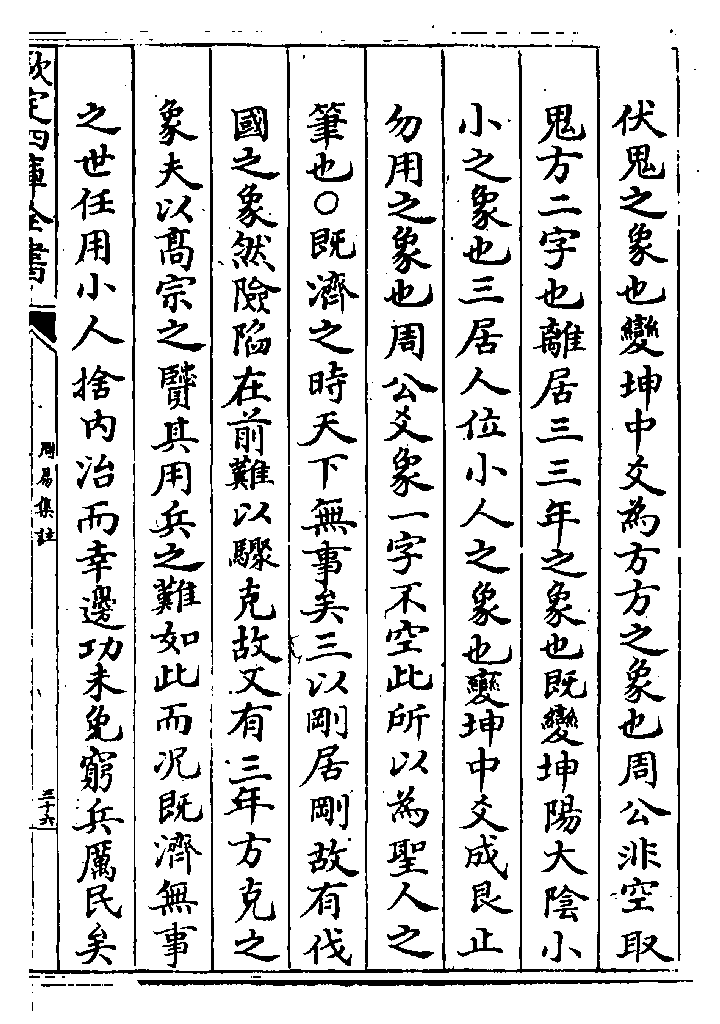 伏鬼之象也變坤中爻為方方之象也周公非空取
鬼方二字也離居三三年之象也既變坤陽大陰小
小之象也三居人位小人之象也變坤中爻成艮止
勿用之象也周公爻象一字不空此所以為聖人之
筆也○既濟之時天下無事矣三以剛居剛故有伐
國之象然險陷在前難以驟克故又有三年方克之
象夫以髙宗之賢其用兵之難如此而况既濟無事
之世任用小人捨内治而幸邊功未免窮兵厲民矣
欽定四庫全書
周易集註
三十六